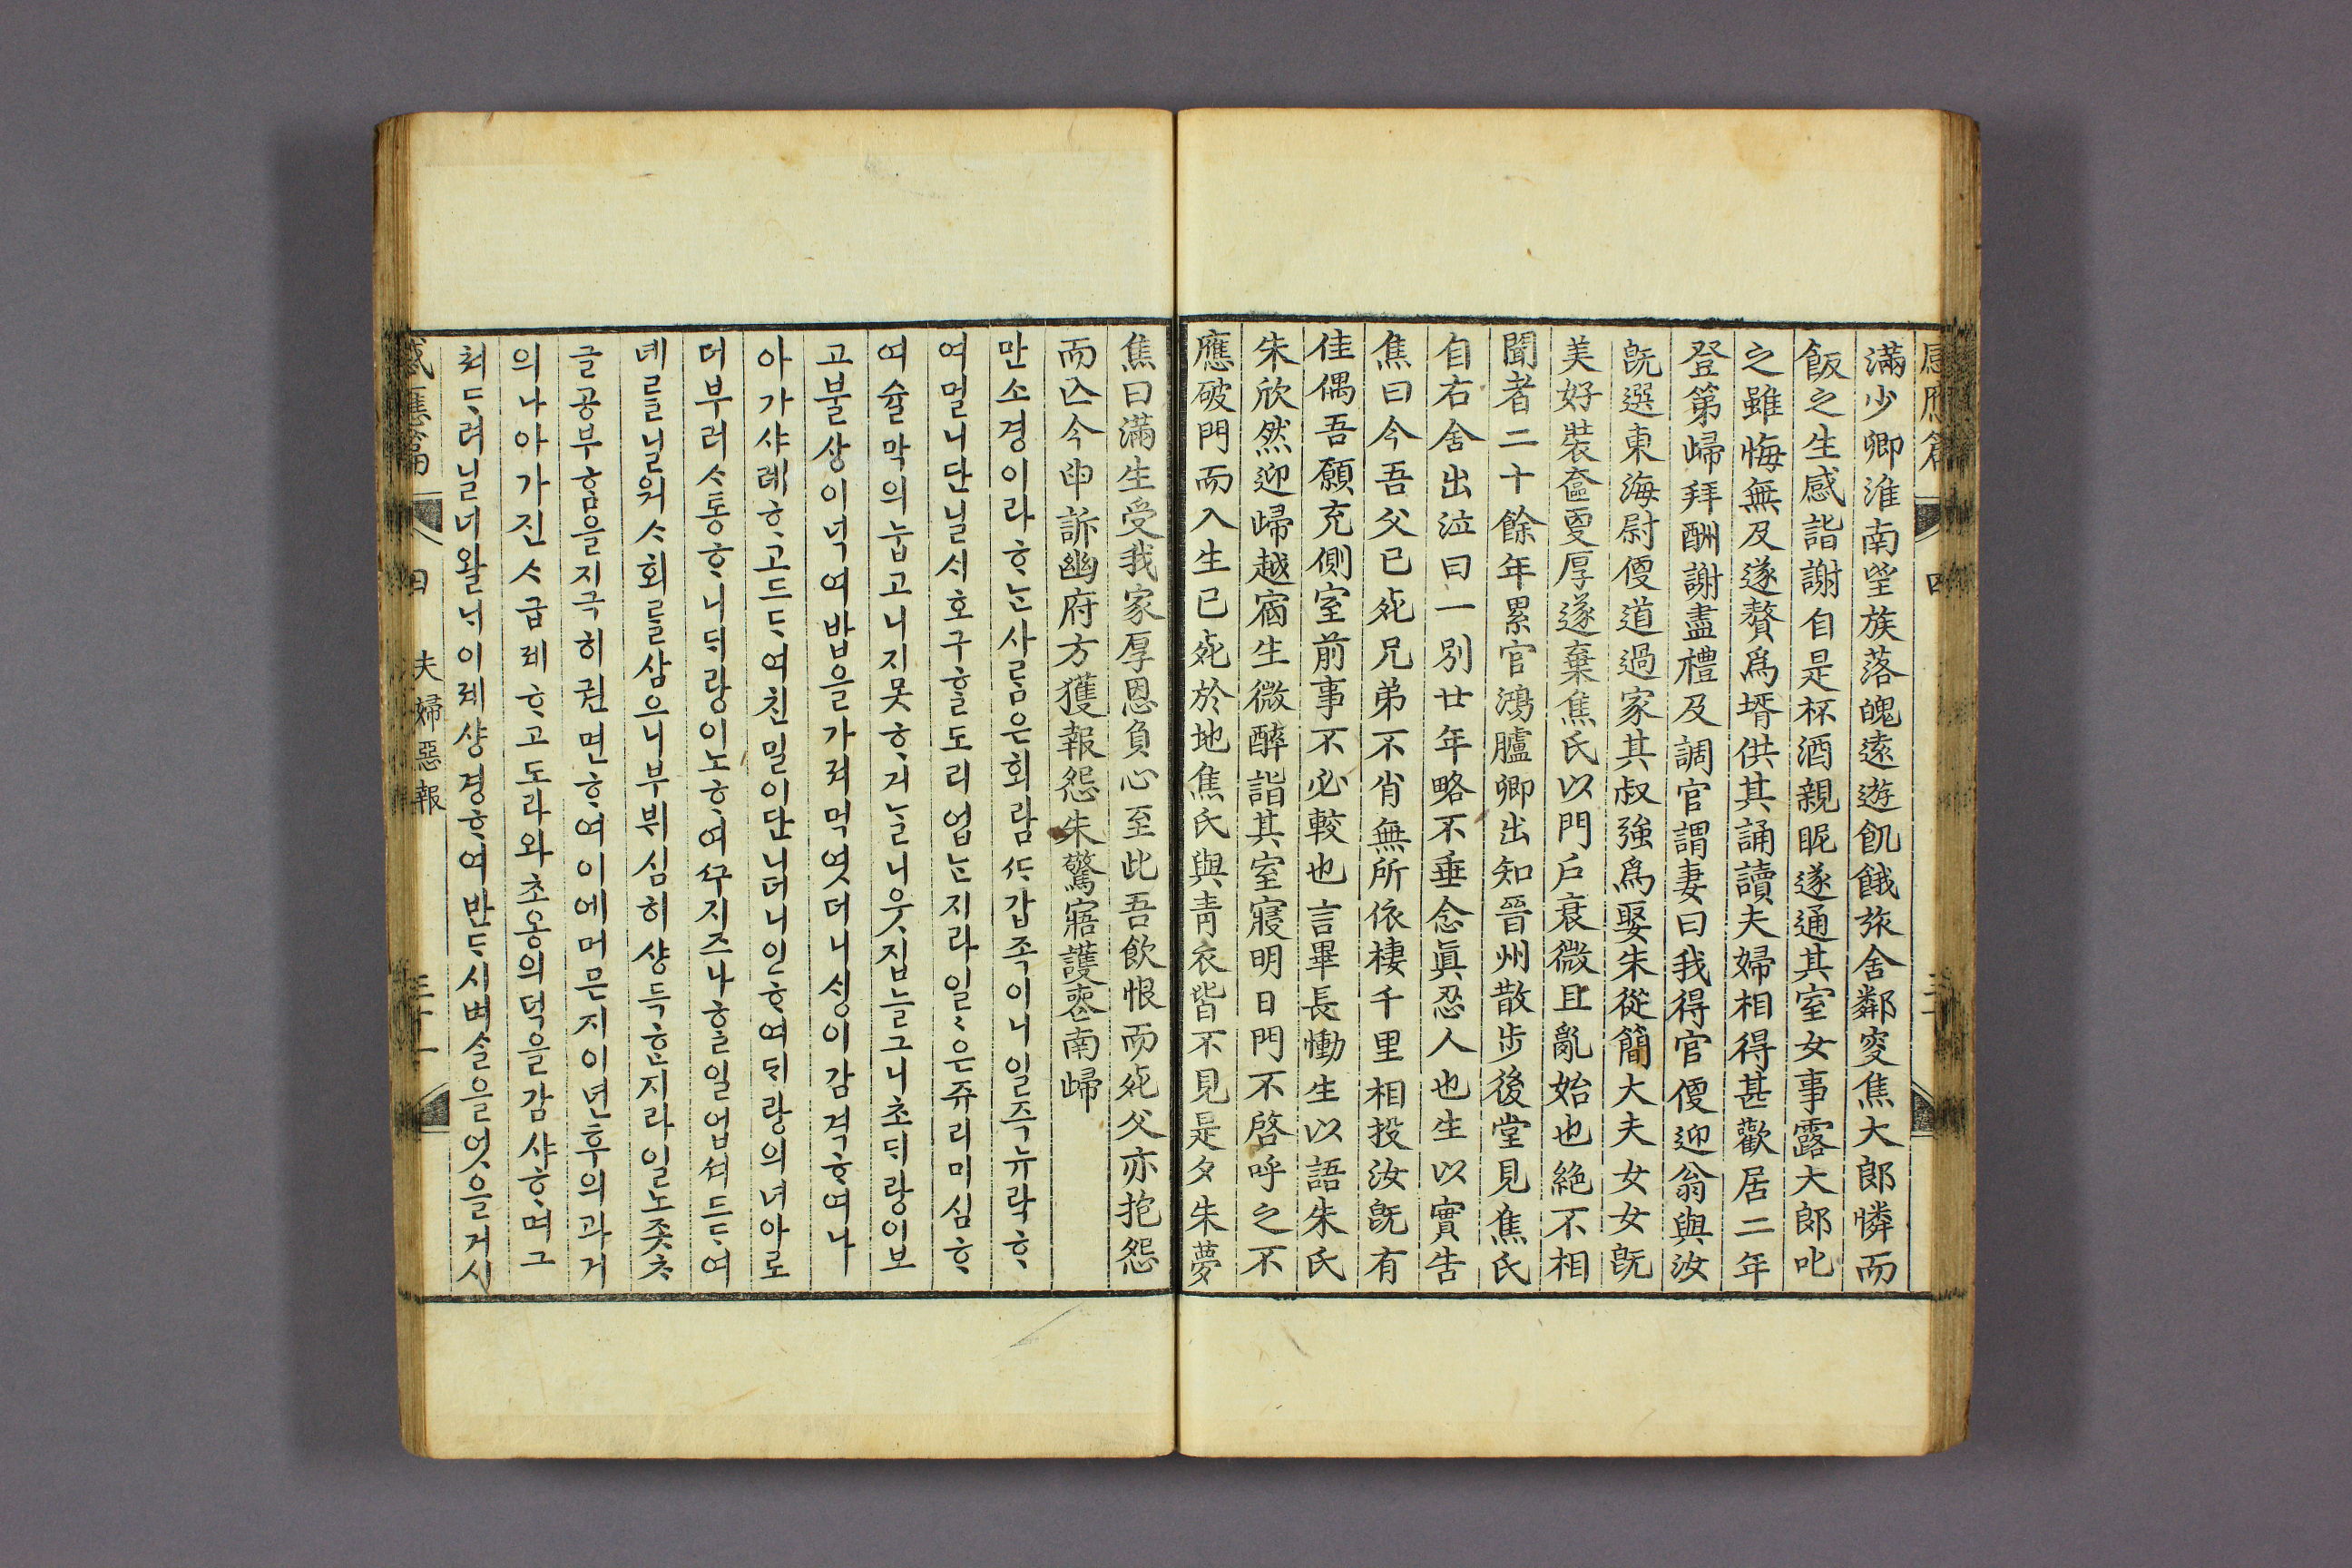 感應篇 四
滿少卿淮南望族落魄遠遊飢餓旅舍鄰叟焦大郎憐而
飯之生感詣謝自是杯酒親昵遂通其室女事露大郎叱
之雖悔無及遂贅爲壻供其誦讀夫婦相得甚歡居二年
登第歸拜酬謝盡禮及調官謂妻曰我得官便迎翁與汝
旣選東海尉便道過家其叔強爲娶朱從簡大夫女女旣
美好裝奩更厚遂棄焦氏以門戶衰微且亂始也絶不相
聞者二十餘年累官鴻臚卿出知晉州散步後堂見焦氏
自右舍出泣曰一別廿年略不垂念眞忍人也生以實告
焦曰今吾父已死兄弟不肖無所依棲千里相投汝旣有
佳偶吾願充側室前事不必較也言畢長慟生以語朱氏
朱欣然迎歸越宿生微醉詣其室寢明日門不啓呼之不
應破門而入生已死於地焦氏與靑衣皆不見是夕朱夢
焦曰滿生受我家厚恩負心至此吾飮恨而死父亦抱怨
而亾今申訴幽府方獲報怨朱驚寤護喪南歸
만소경이라ᄒᆞᄂᆞᆫ사ᄅᆞᆷ은회람ᄯᅡ갑족이니일즉뉴락ᄒᆞ
여멀니단닐ᄉᆡ호구ᄒᆞᆯ도리업ᄂᆞᆫ지라일〻은쥬리미심ᄒᆞ
여슐막의눕고니지못ᄒᆞ거ᄂᆞᆯ니웃집늘그니초ᄃᆡ랑이보
고불샹이넉여밥을가져먹엿더니ᄉᆡᆼ이감격ᄒᆞ여나
아가샤례ᄒᆞ고드ᄃᆡ여친밀이단니더니인ᄒᆞ여ᄃᆡ랑의녀아로
더부러ᄉᆞ통ᄒᆞ니ᄃᆡ랑이노ᄒᆞ여ᄭᅮ지즈나ᄒᆞᆯ일업셔드ᄃᆡ여
데릴닐위ᄉᆞ회ᄅᆞᆯ삼으니부뷔심히샹득ᄒᆞᆫ지라일노좃ᄎᆞ
글공부ᄒᆞᆷ을지극히권면ᄒᆞ여이에머믄지이년후의과거
의나아가진ᄉᆞ급뎨ᄒᆞ고도라와초옹의덕을감샤ᄒᆞ며그
쳐ᄃᆞ려닐너왈ᄂᆡ이졔샹경ᄒᆞ여반ᄃᆞ시벼슬을엇을거시
感應篇 四 夫婦惡報 三十一